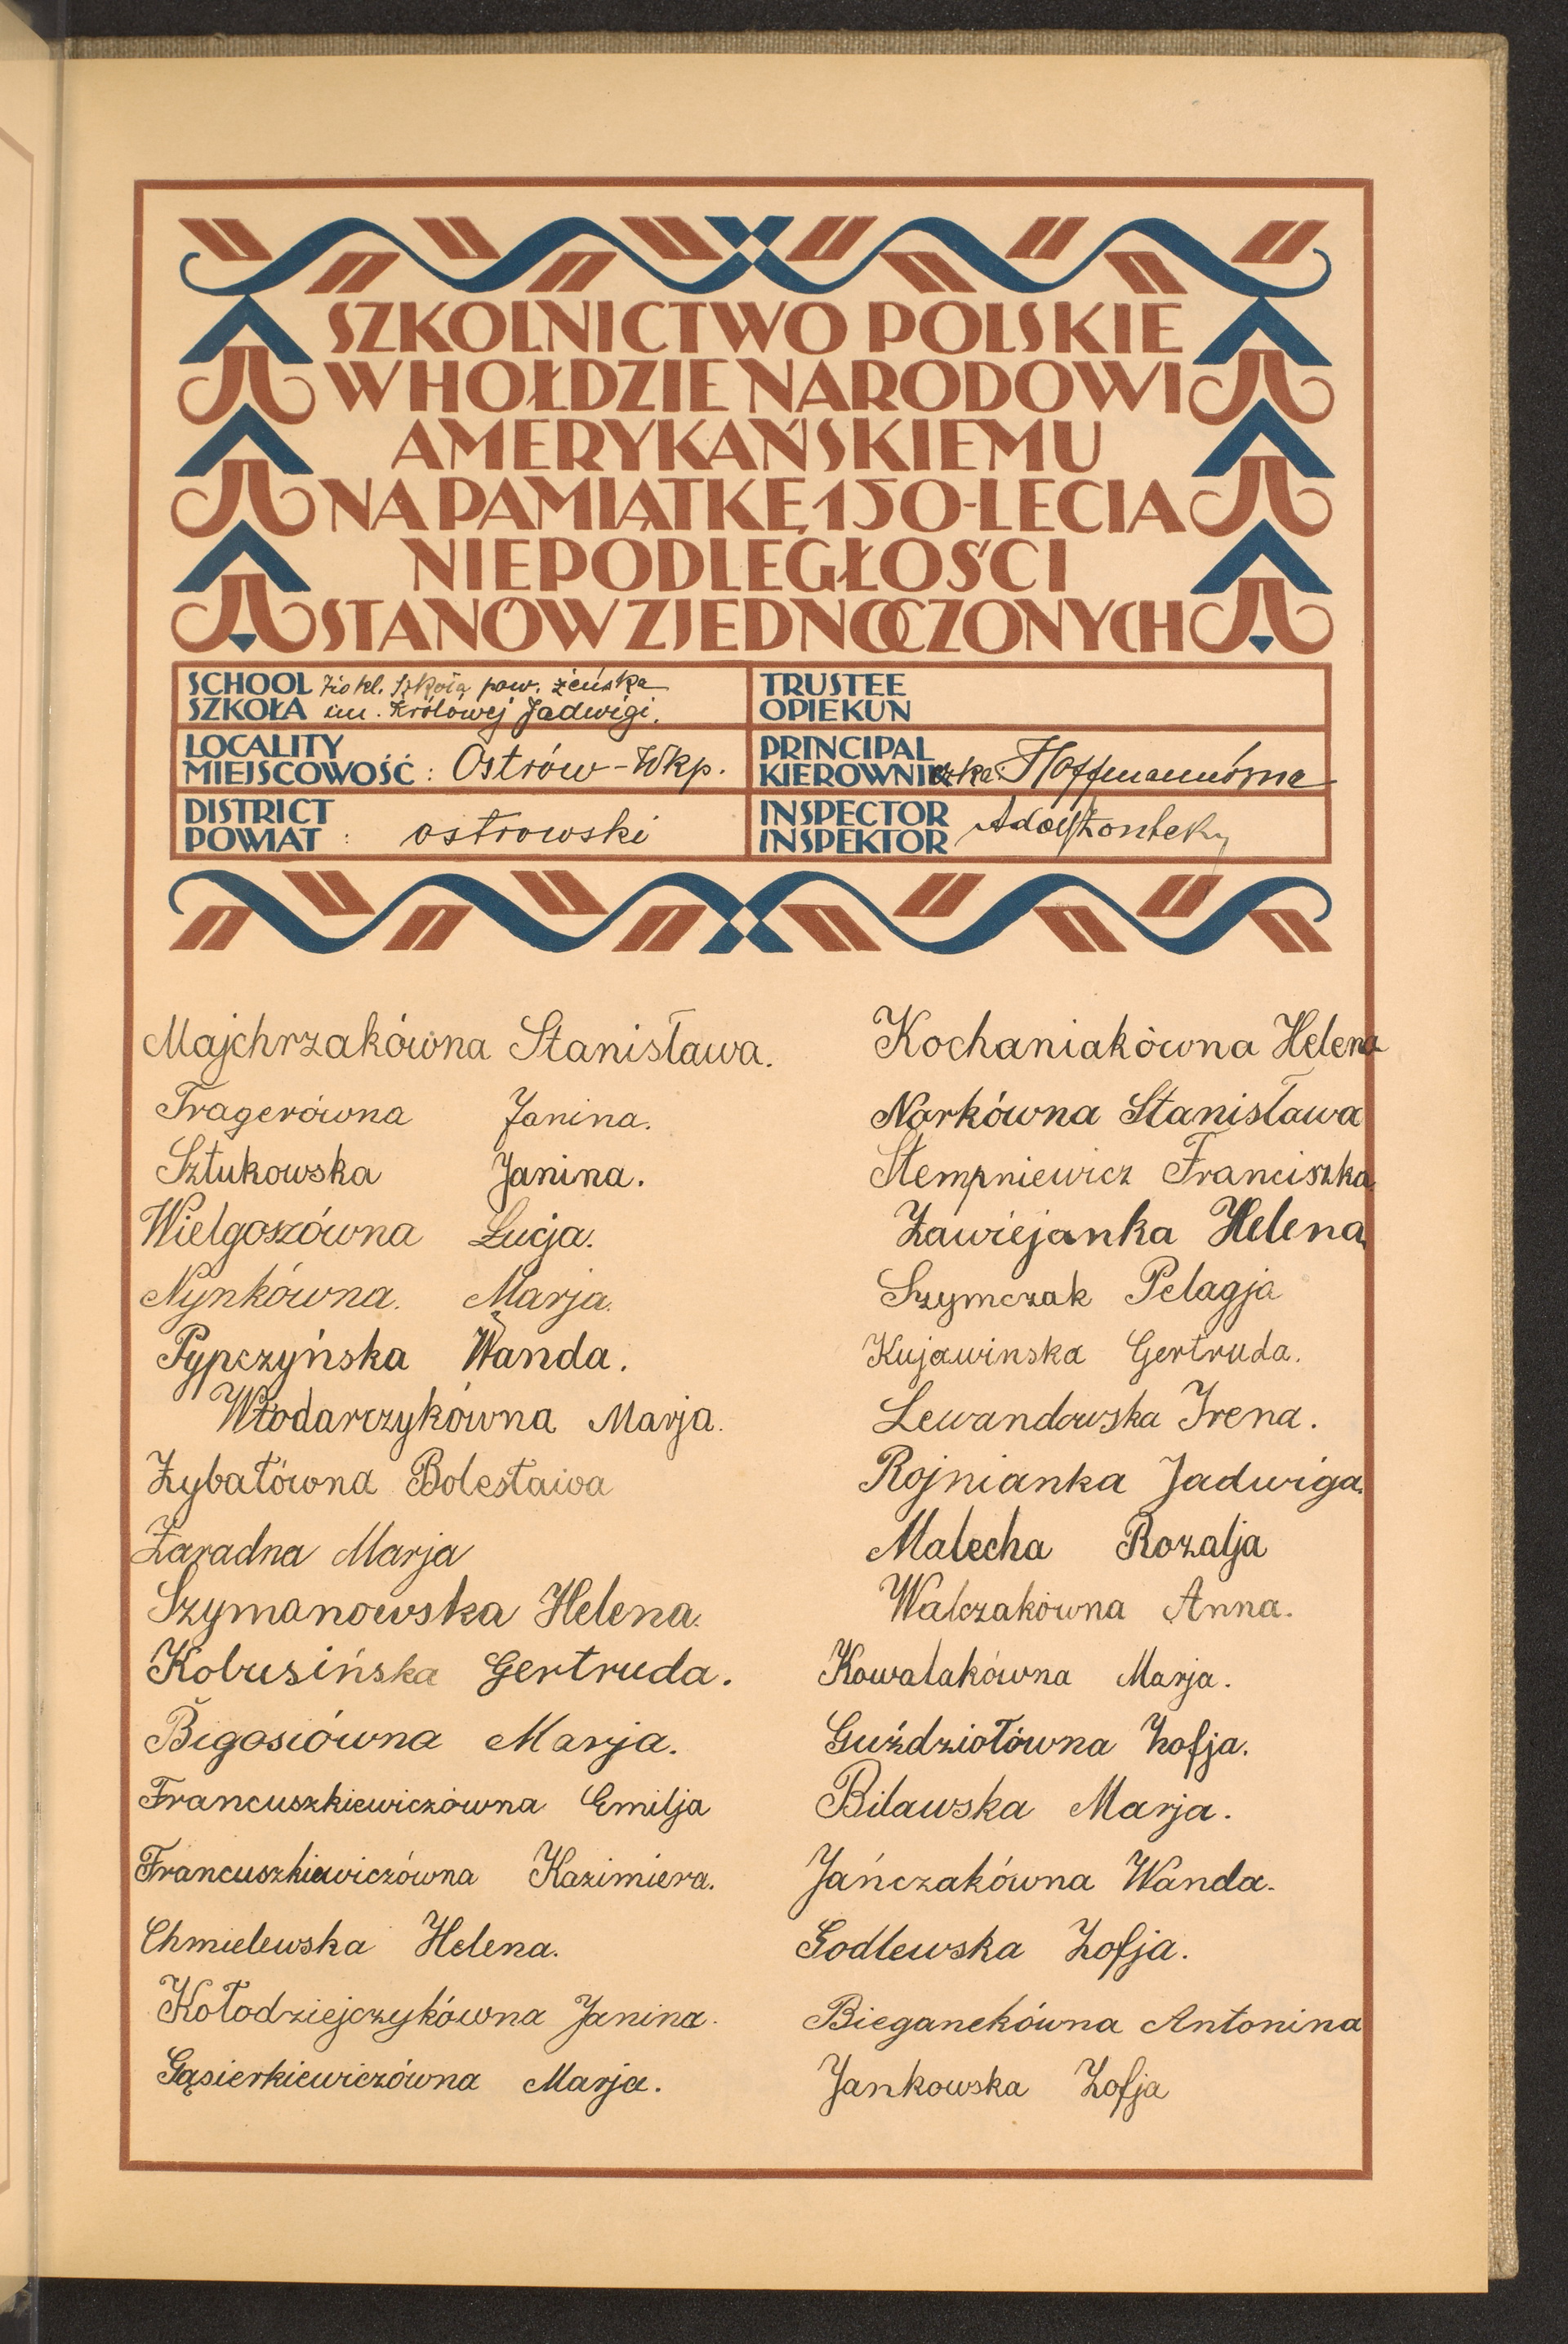 SZKOLNICTWO POLSKIE
W HOŁDZIE NARODOWI
AMERYKAŃSKIEMU
NA PAMIĄTKĘ 150-LECIA
NIEPODLEGŁOŚCI
STANÓW ZJEDNOCZONYCH
SCHOOL 7io kl. Szkoła pow. żeńska
SZKOŁA im. Królowej Jadwigi.
TRUSTEE
OPIEKUN
LOCALITY
MIEJSCOWOŚĆ : Ostrów-Wkp.
PRINCIPAL
KIEROWNIczka: Hoffmannówna
DISTRICT
POWIAT : ostrowski
INSPECTOR
INSPEKTOR Adolf
Majchrzakówna Stanisława.
Tragerówna Janina.
Sztukowska Janina.
Wielgoszówna Łucja.
Nynkówna. Marja.
Pypczyńska Wanda.
Włodarczykówna Marja.
Zybałówna Bolesława
Zaradna Marja
Szymanowska Helena.
Kobusińska Gertruda.
Bigosiówna Marja.
Francuszkiewiczówna Emilja
Francuszkiewiczówna Kazimiera.
Chmielewska Helena.
Kołodziejczykówna Janina.
Gąsierkiewiczówna Marja.
Kochaniakówna Helena
Norkówna Stanisława
Stempniewicz Franciszka.
Zawiejanka Helena.
Szymczak Pelagja
Kujawinska Gertruda.
Lewandowska Irena.
Rojnianka Jadwiga.
Malecha Rozalja
Walczakówna Anna.
Kowalakówna Marja.
Guździołówna Zofja.
Bilawska Marja.
Jańczakówna Wanda.
Godlewska Zofja.
Bieganekówna Antonina
Jankowska Zofja